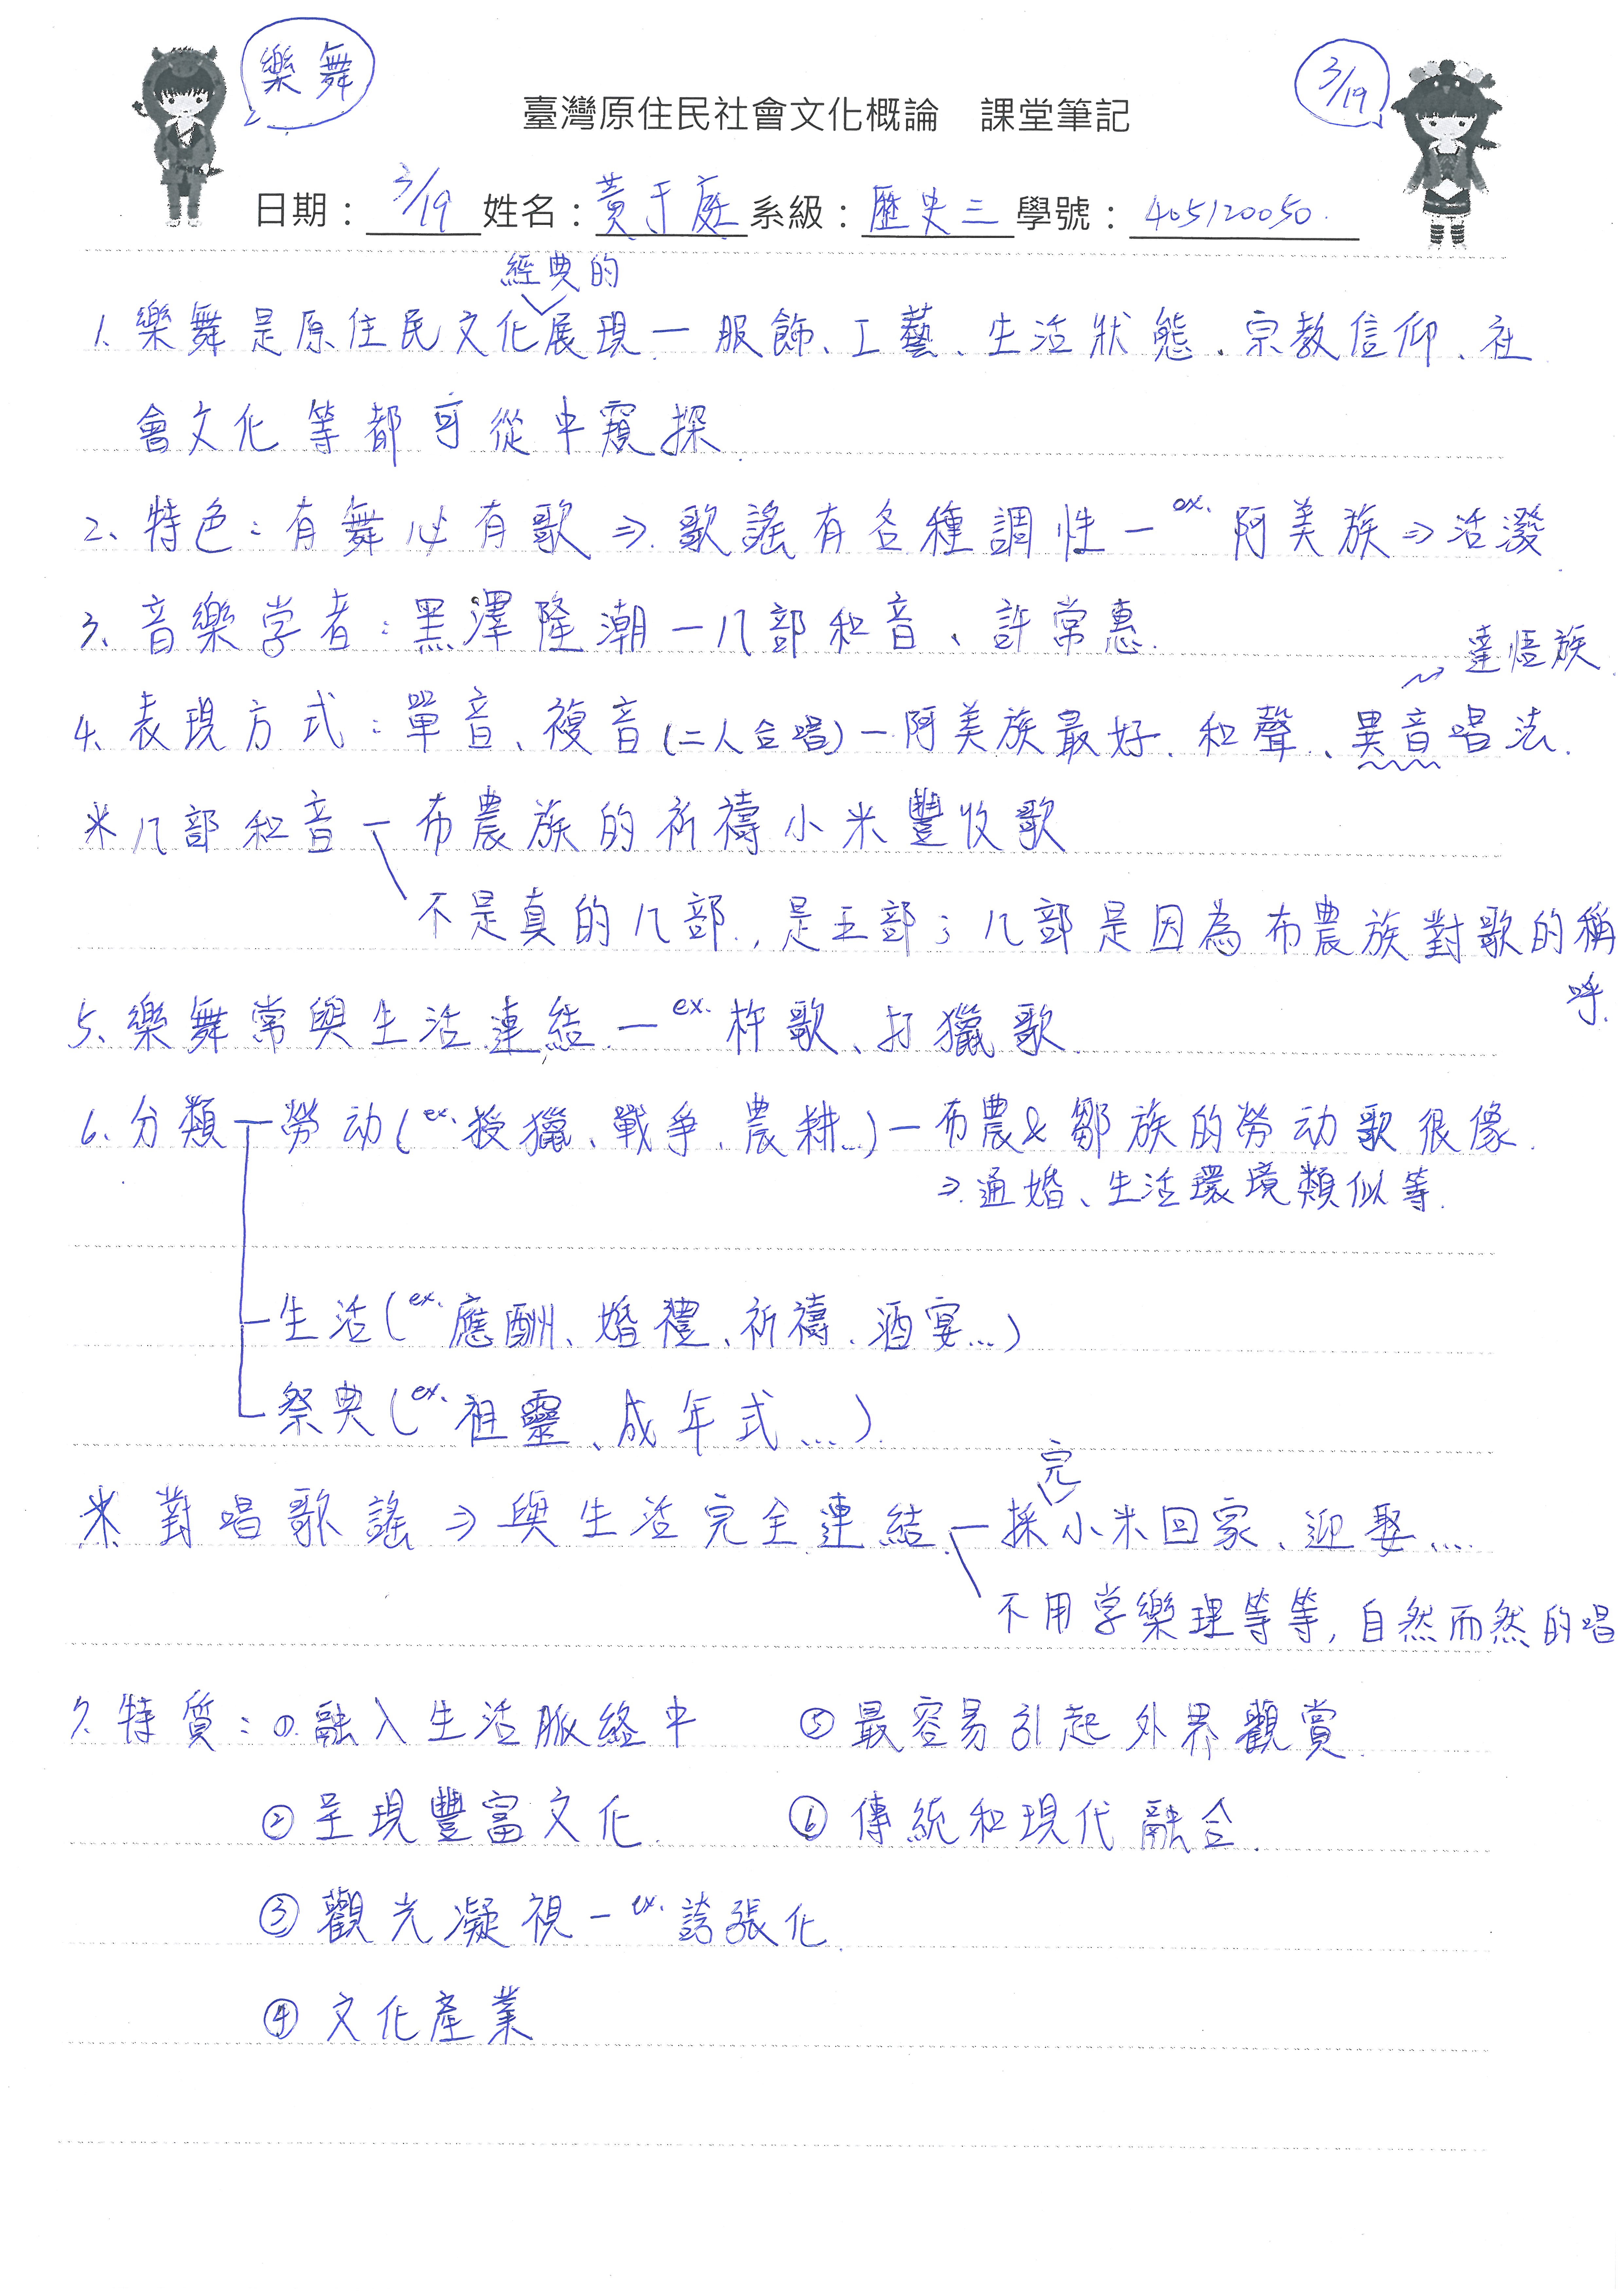 樂舞
3/19
臺灣原住民社會文化概論 課堂筆記
日期：3/19 姓名：黃于庭 系級：歷史三 學號：405120050.
經典的
1. 樂舞是原住民文化展現 — 服飾、工藝、生活狀態、宗教信仰、社
會文化等都可從中窺探.
2、特色：有舞必有歌 ⇒ 歌謠有各種調性 — ex. 阿美族 ⇒ 活潑.
3、音樂学者：黑澤隆潮 — 八部和音、許常惠.
達悟族
4、表現方式：單音、複音(二人合唱) — 阿美族最好、和聲、異音唱法.
※八部和音 — 布農族的祈禱小米豐收歌
不是真的八部，是五部；八部是因為布農族對歌的稱
呼.
5、樂舞常與生活連結 — ex. 杵歌、打獵歌.
6、分類 — 勞动(ex. 狩獵、戰爭、農耕…) — 布農&鄒族的勞动歌很像.
⇒ 通婚、生活環境類似等.
生活(ex. 應酬、婚禮、祈禱、酒宴…)
祭典(ex. 祖靈、成年式…).
完
※ 對唱歌謠 ⇒ 與生活完全連結 — 採小米回家、迎娶….
不用学樂理等等，自然而然的唱
7. 特質：①. 融入生活脈絡中 ⑤ 最容易引起外界觀賞.
② 呈現豐富文化. ⑥ 傳統和現代融合.
③ 觀光凝視 — ex. 誇張化.
④ 文化產業